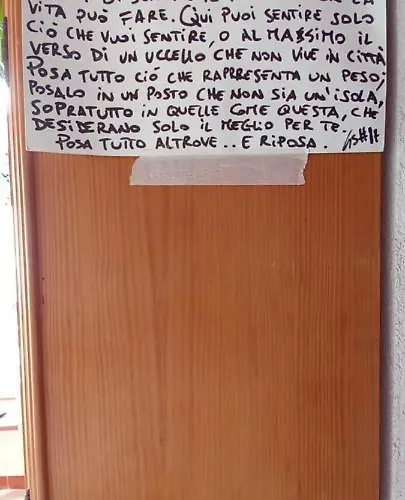 VITA PUÒ FARE. QUI PUOI SENTIRE SOLO
CIÒ CHE VUOI SENTIRE, O AL MASSIMO IL
VERSO DI UN UCCELLO CHE NON VIVE IN CITTÀ
POSA TUTTO CIÓ CHE RAPPRESENTA UN PESO;
POSALO IN UN POSTO CHE NON SIA UN'ISOLA,
SOPRATUTTO IN QUELLE COME QUESTA, CHE
DESIDERANO SOLO IL MEGLIO PER TE.
POSA TUTTO ALTROVE.. E RIPOSA.